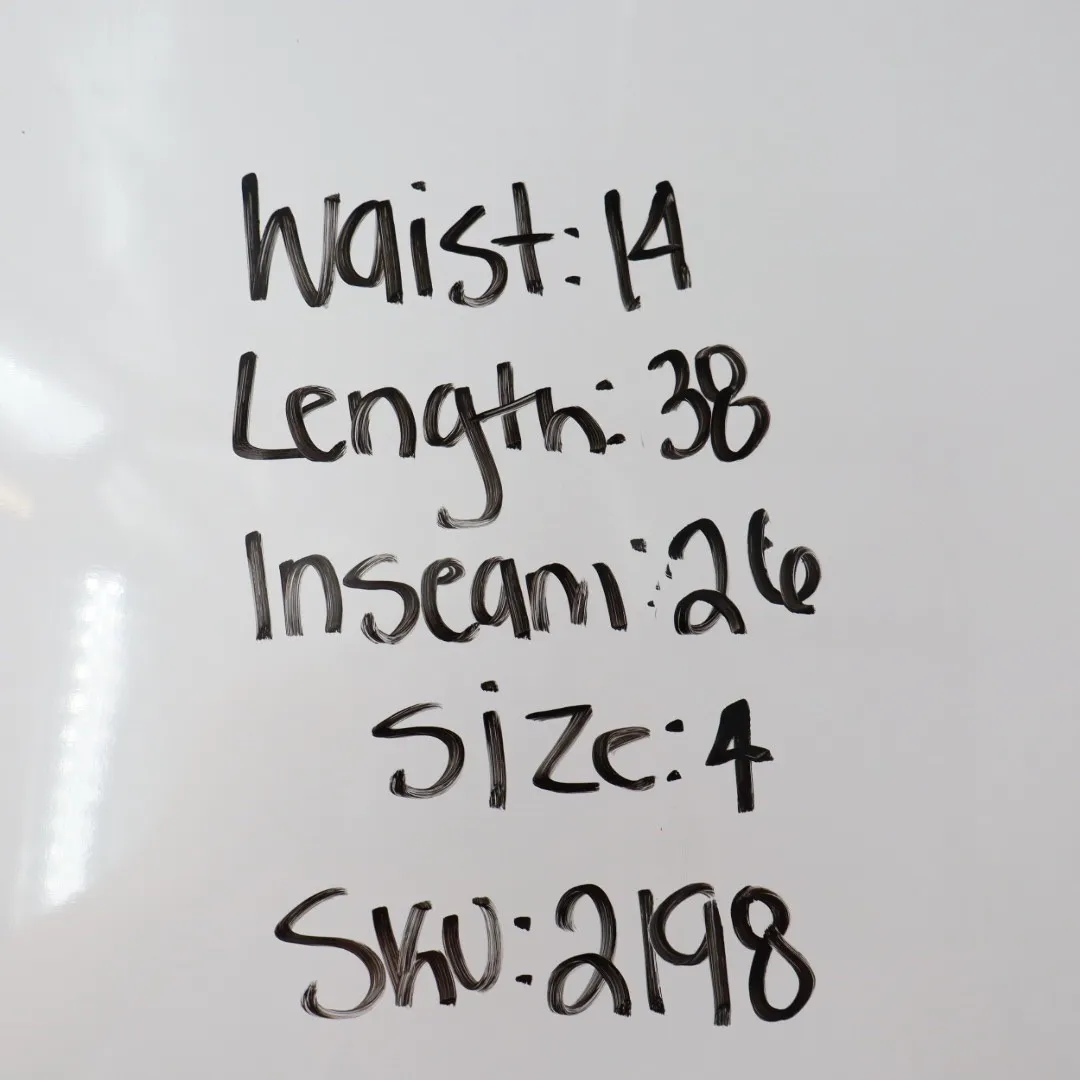 Waist: 14
Length: 38
Inseam: 26
Size: 4
SKU: 2198